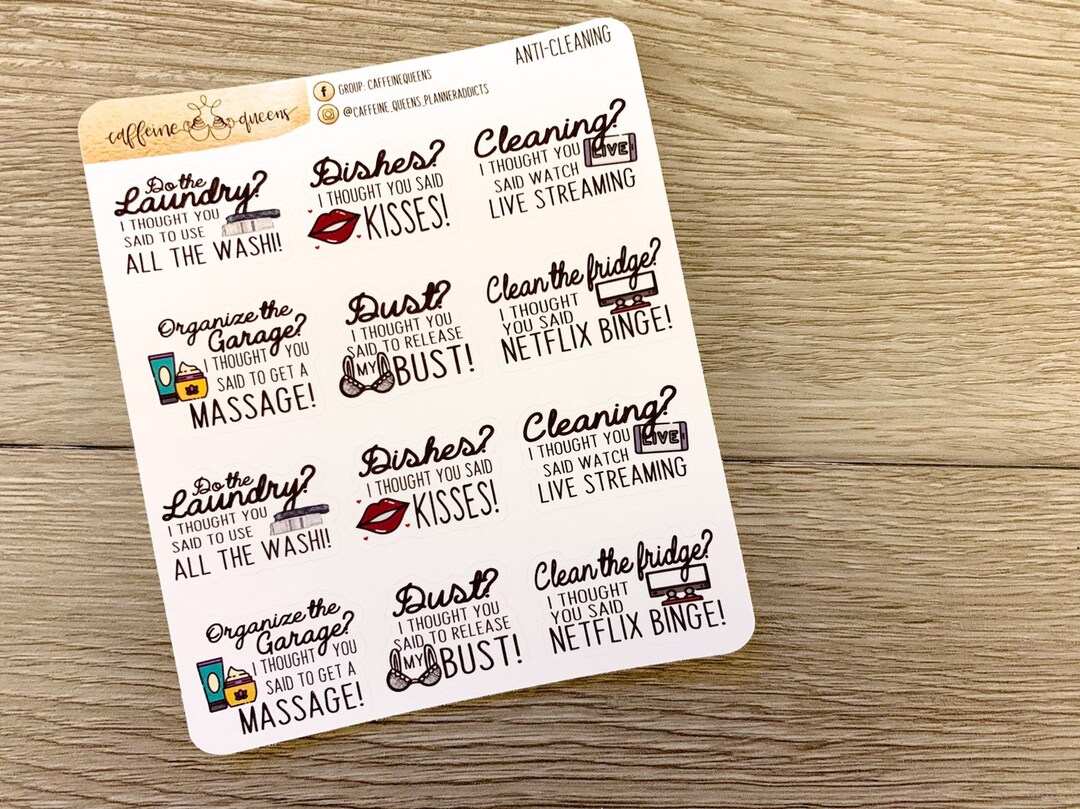 caffeine queens
GROUP: CAFFEINEQUEENS
@CAFFEINE_QUEENS_PLANNERADDICTS
ANTI-CLEANING
Do the
Laundry?
I THOUGHT YOU
SAID TO USE
ALL THE WASHI!
Dishes?
I THOUGHT YOU SAID
KISSES!
Cleaning?
I THOUGHT YOU
LIVE
SAID WATCH
LIVE STREAMING
Organize the
Garage?
I THOUGHT YOU
SAID TO GET A
MASSAGE!
Dust?
I THOUGHT YOU
SAID TO RELEASE
MY
BUST!
Clean the fridge?
I THOUGHT
YOU SAID
NETFLIX BINGE!
Do the
Laundry?
I THOUGHT YOU
SAID TO USE
ALL THE WASHI!
Dishes?
I THOUGHT YOU SAID
KISSES!
Cleaning?
I THOUGHT YOU
LIVE
SAID WATCH
LIVE STREAMING
Organize the
Garage?
I THOUGHT YOU
SAID TO GET A
MASSAGE!
Dust?
I THOUGHT YOU
SAID TO RELEASE
MY
BUST!
Clean the fridge?
I THOUGHT
YOU SAID
NETFLIX BINGE!